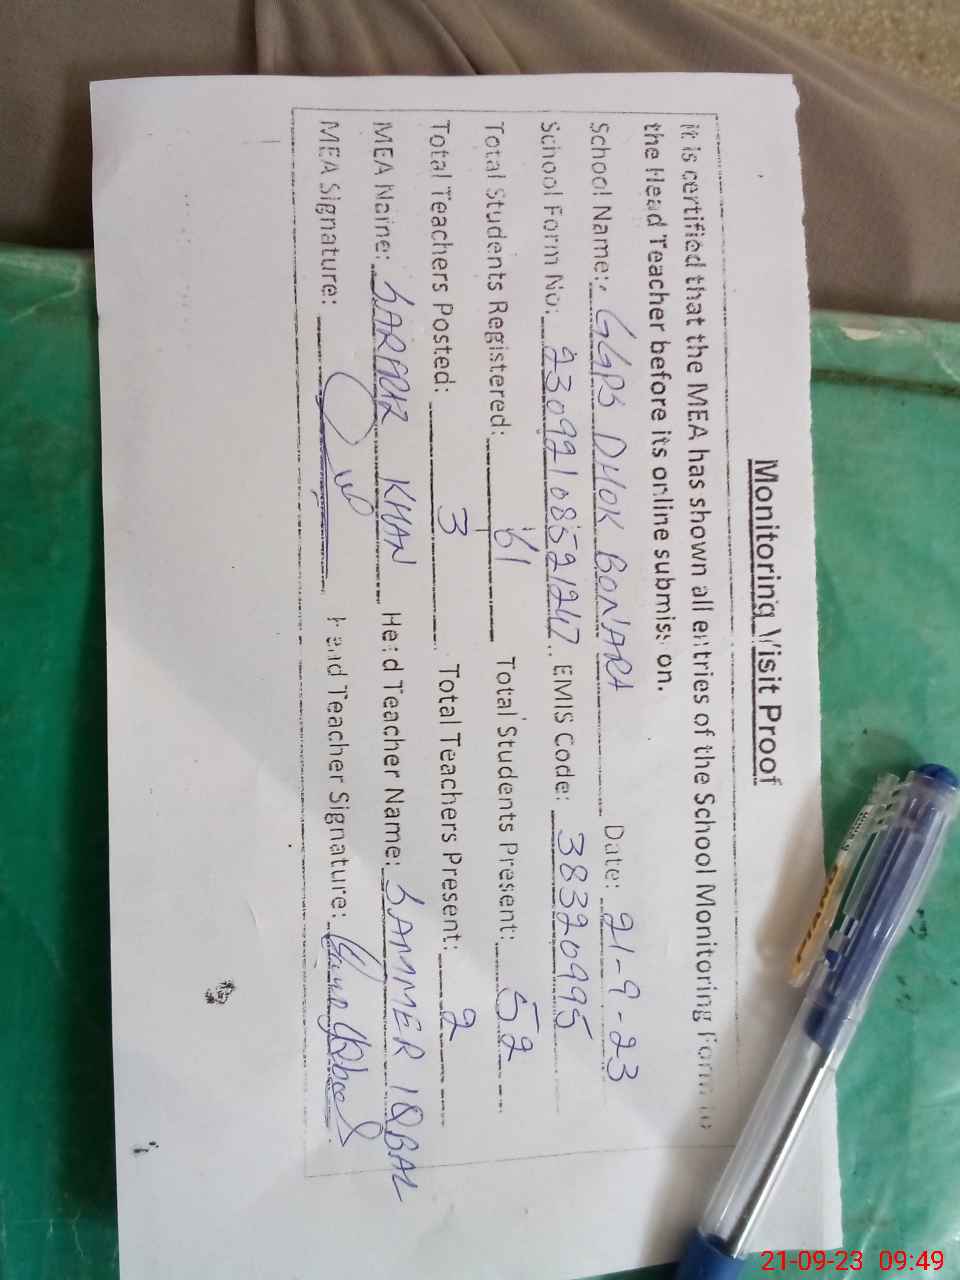 Monitoring Visit Proof
It is certified that the MEA has shown all entries of the School Monitoring Form to
the Head Teacher before its online submission.
School Name: GGPS DHOK BONARA Date: 21-9-23
School Form No: 23092108521247 EMIS Code: 38320995
Total Students Registered: 61 Total Students Present: 52
Total Teachers Posted: 3 Total Teachers Present: 2
MEA Name: KHAN Head Teacher Name: SAMMER IQBAL
MEA Signature: Head Teacher Signature:
21-09-23 09:49